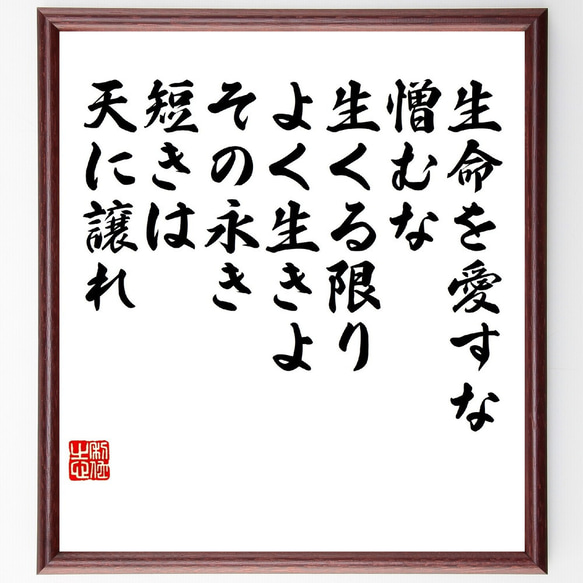 生命を愛すな
憎むな
生くる限り
よく生きよ
その永き
短きは
天に譲れ